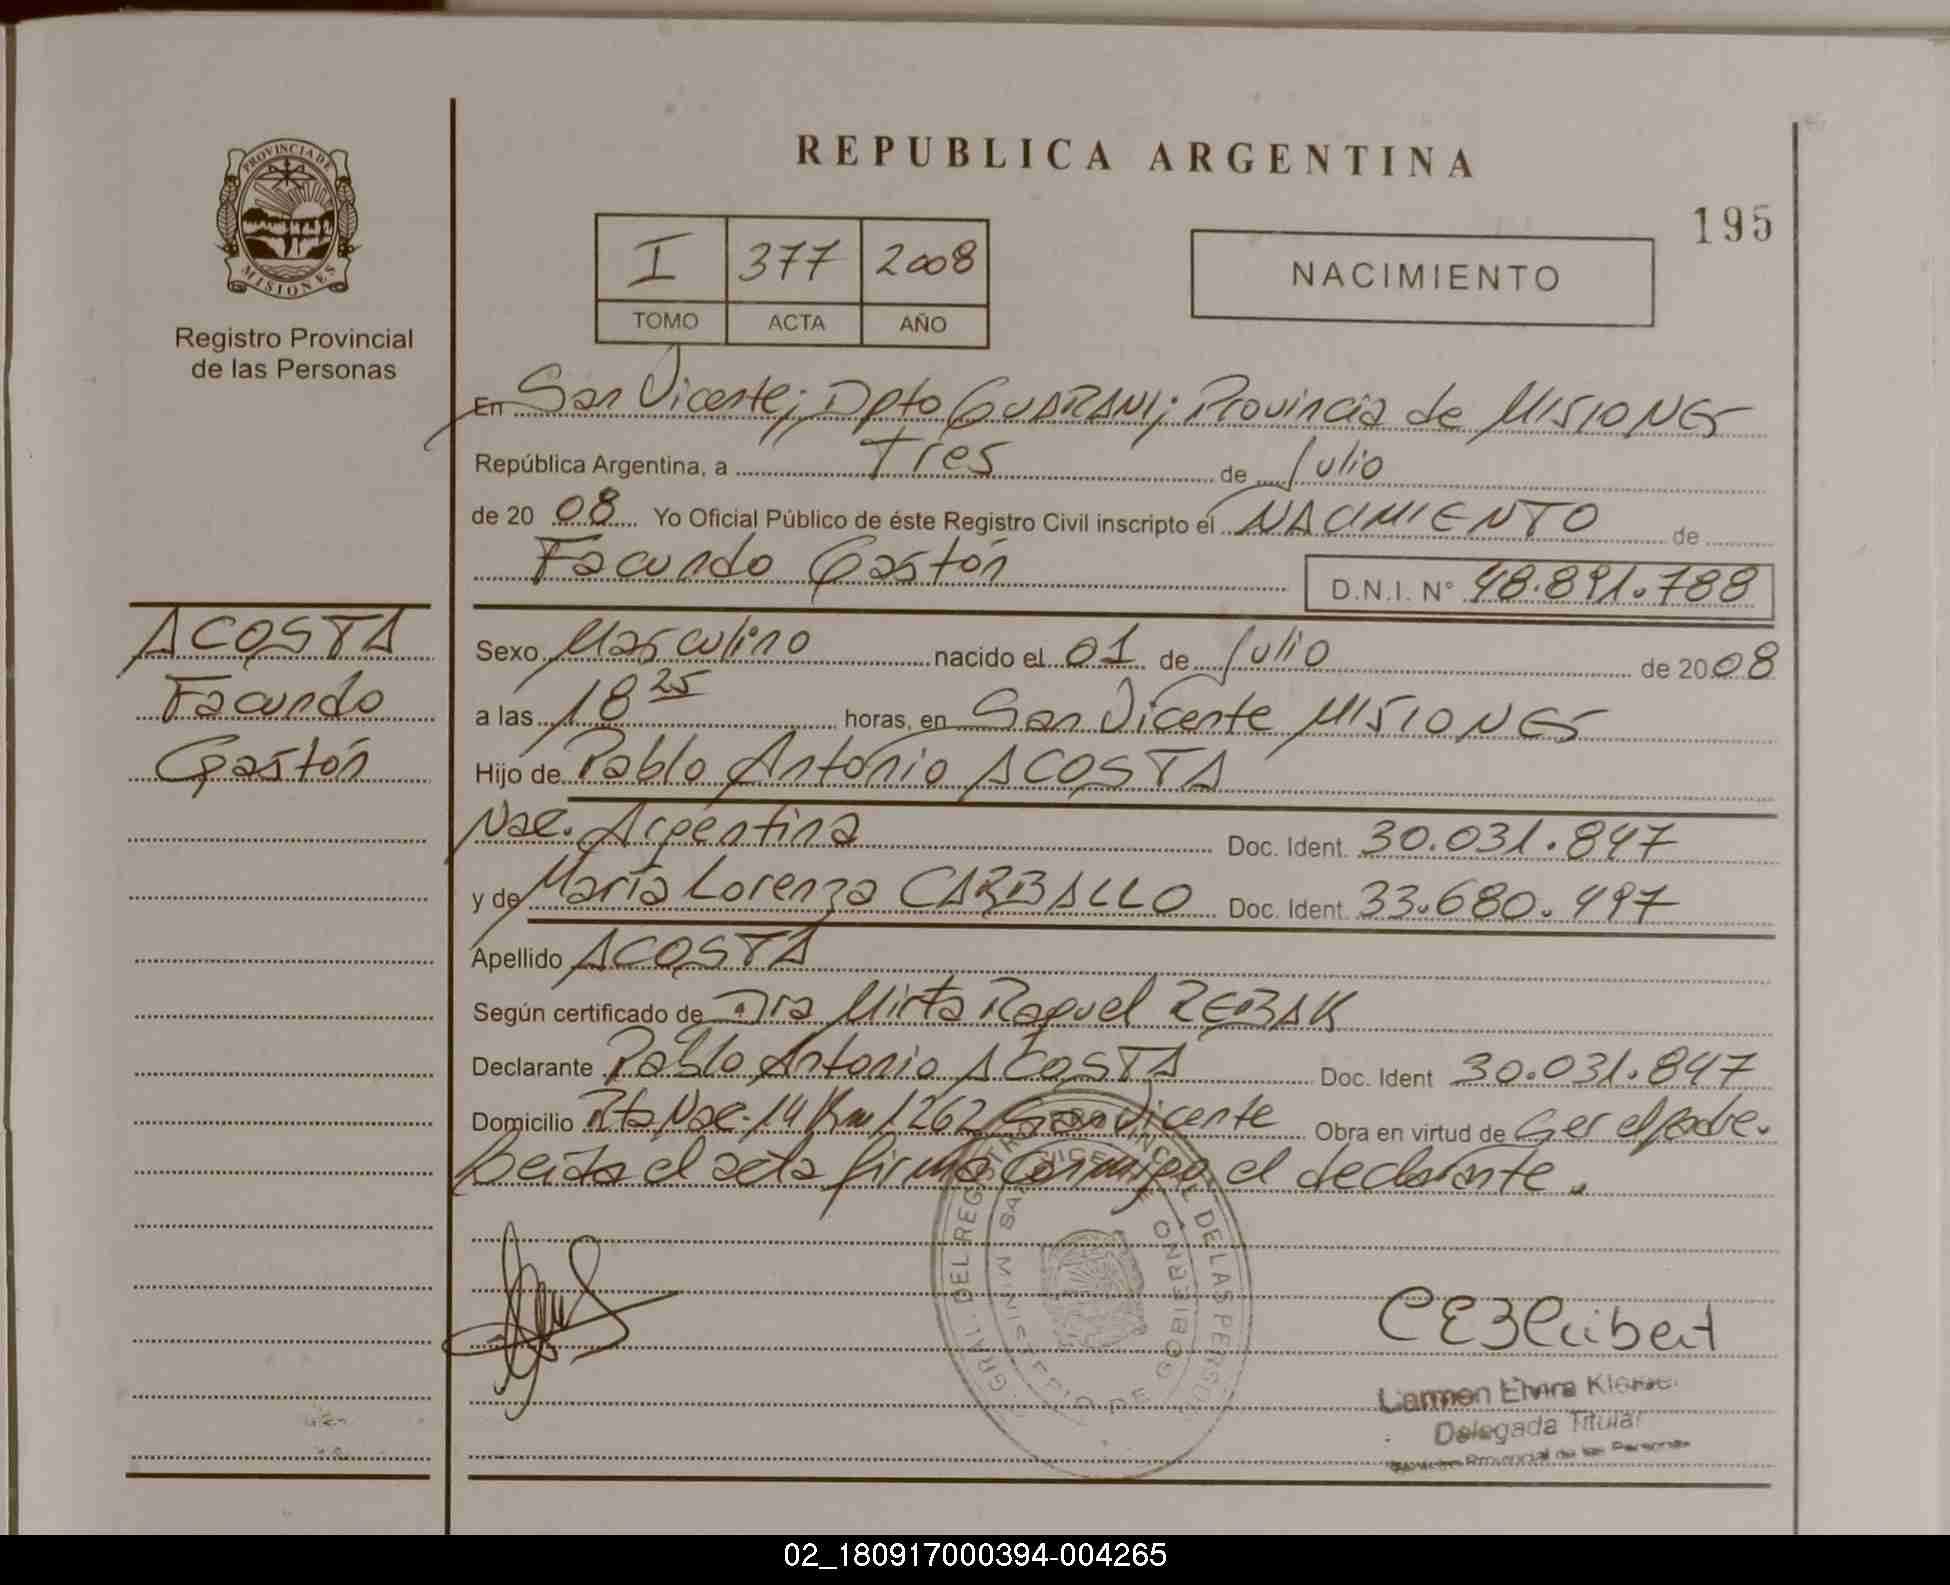 REPUBLICA ARGENTINA
195
PROVINCIA DE
MISIONES
Registro Provincial
de las Personas
I 377 2008
TOMO ACTA AÑO
NACIMIENTO
En San Vicente; Dpto GUARANI; Provincia de MISIONES
República Argentina, a Tres de Julio
de 20 08 Yo Oficial Público de éste Registro Civil inscripto el NACIMIENTO de
Facundo Gastón D.N.I. N° 48.891.788
ACOSTA
Facundo
Gastón
Sexo Masculino nacido el 01 de Julio de 2008
a las 18 25 horas, en San Vicente MISIONES
Hijo de Pablo Antonio ACOSTA
Nac. Argentina Doc. Ident. 30.031.847
y de María Lorenza CARBALLO Doc. Ident. 33.680.497
Apellido ACOSTA
Según certificado de Dra Mirta Raquel REBAK
Declarante Pablo Antonio ACOSTA Doc. Ident 30.031.847
Domicilio Rta Nac. 14 Km 1262 San Vicente Obra en virtud de ser el padre.
Leida el acta firma conmigo el declarante.
GRAL. DEL REGISTRO PROVINCIAL DE LAS PERSONAS
SAN VICENTE
MISIONES
GOBIERNO
Carmen Elvira
Delegada Titular
Provincial de las Personas
02_180917000394-004265